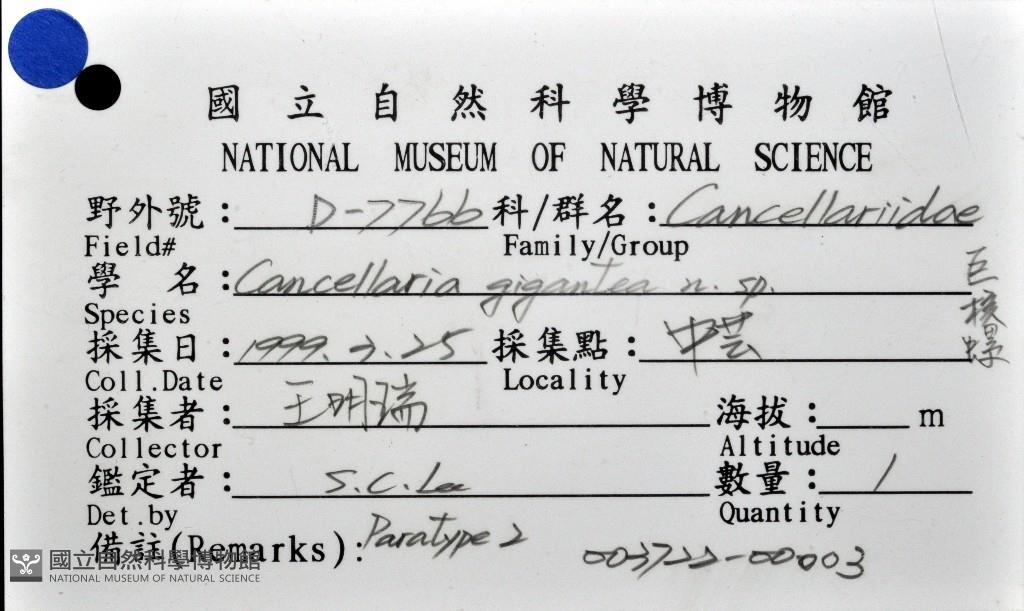 國立自然科學博物館
NATIONAL MUSEUM OF NATURAL SCIENCE
野外號：D-7766 科/群名：Cancellariidae
Field# Family/Group
學 名：Cancellaria gigantea n. sp.
巨核螺
Species
採集日：1999.7.25 採集點：中芸
Coll.Date Locality
採集者：王明瑞 海拔： m
Collector Altitude
鑑定者：S.C.Lee 數量：1
Det.by Quantity
備註(Remarks)：Paratype 2
003722-00003
國立自然科學博物館
NATIONAL MUSEUM OF NATURAL SCIENCE